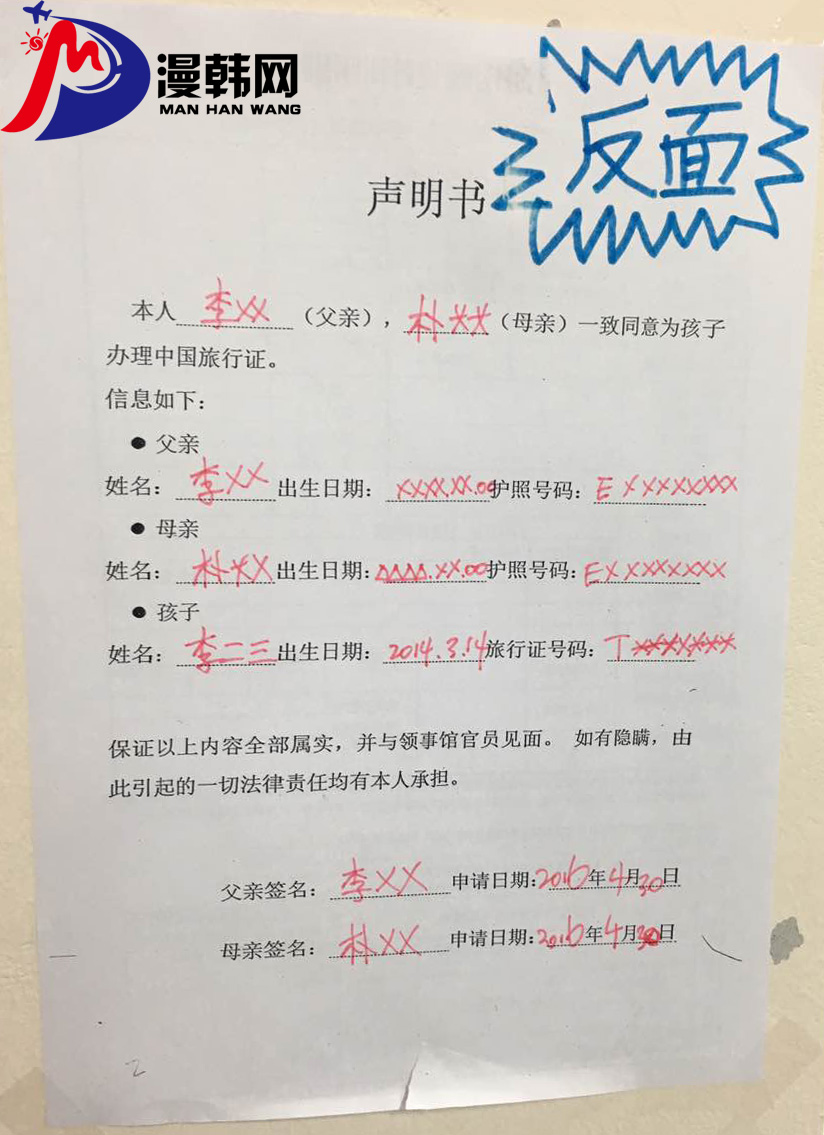 漫韩网
MAN HAN WANG
反面
声明书
本人 李XX （父亲），朴XX（母亲）一致同意为孩子
办理中国旅行证。
信息如下：
● 父亲
姓名： 李XX 出生日期： XXXX.XX.00 护照号码：EXXXXXXXX
● 母亲
姓名： 朴XX 出生日期：△△△△.XX.00 护照号码：EXXXXXXXX
● 孩子
姓名： 李二三 出生日期： 2014.3.14 旅行证号码： TXXXXXXX
保证以上内容全部属实，并与领事馆官员见面。 如有隐瞒，由
此引起的一切法律责任均有本人承担。
父亲签名： 李XX 申请日期：2016年4月30日
母亲签名： 朴XX 申请日期：2016年4月30日
2